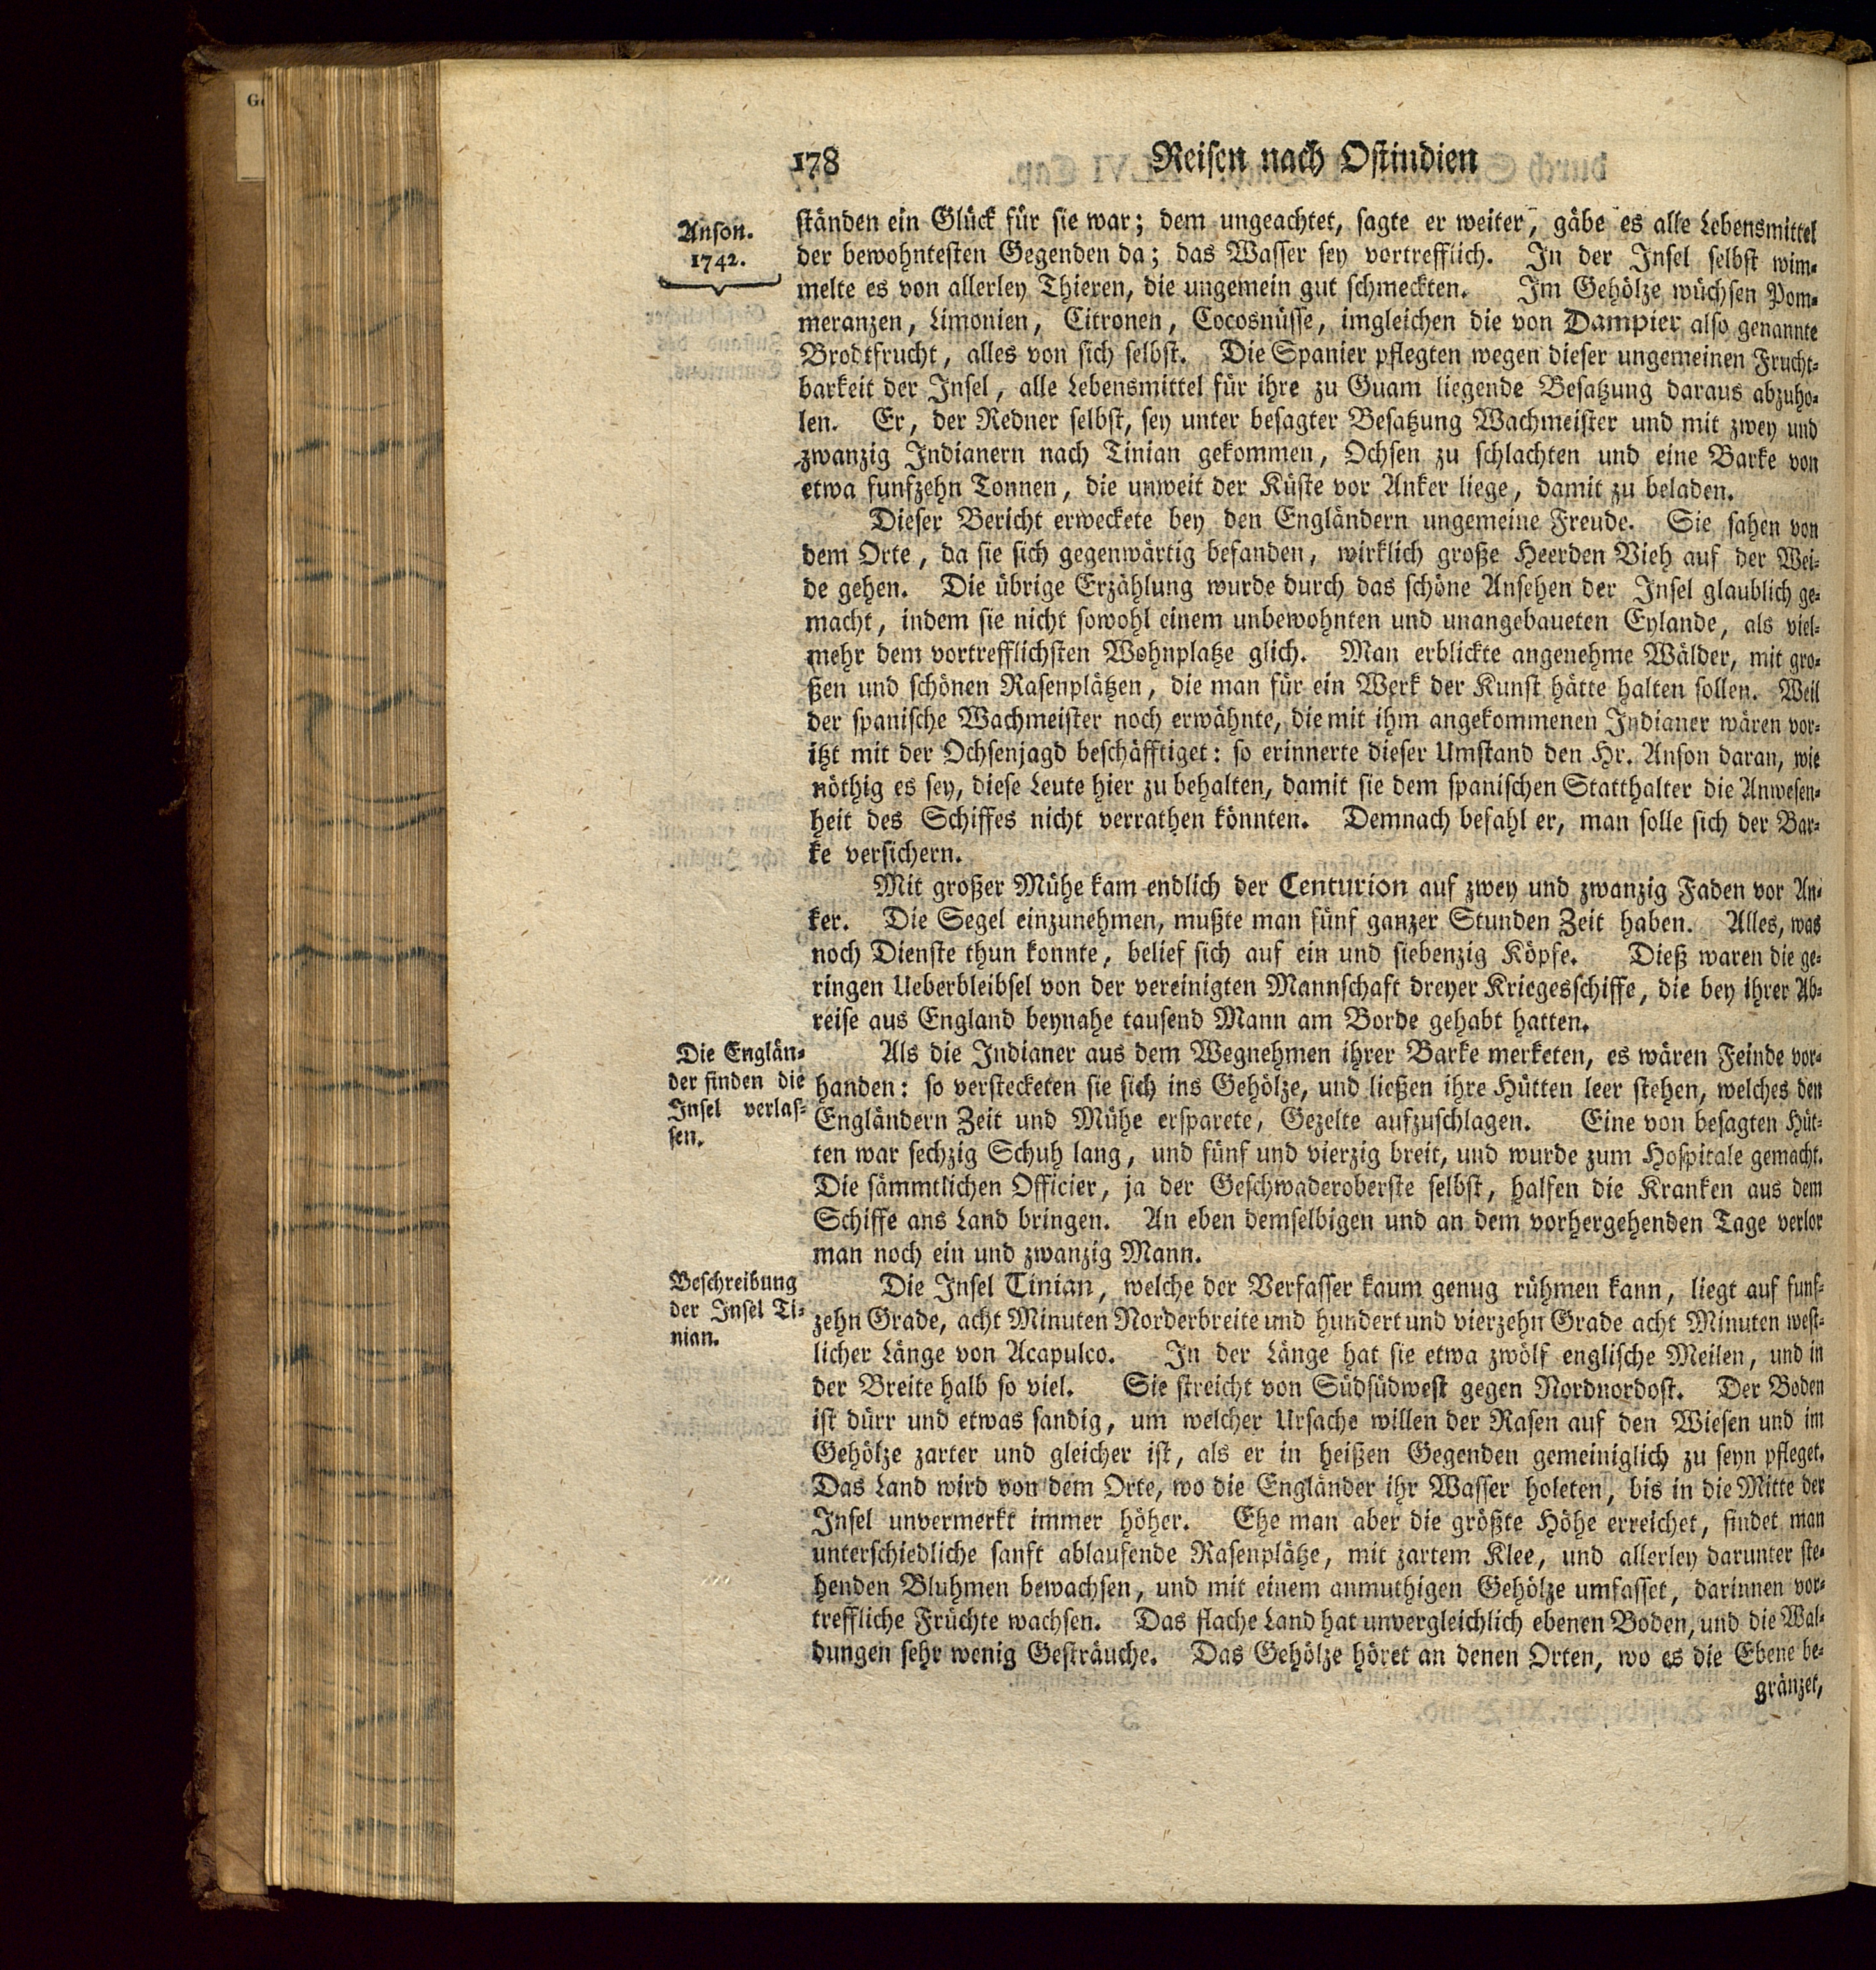 178
Reisen nach Ostindien
Anson.
1742.
ständen ein Glück für sie war; dem ungeachtet, sagte er weiter, gäbe es alle Lebensmittel
der bewohntesten Gegenden da; das Wasser sey vortrefflich. In der Insel selbst wim-
melte es von allerley Thieren, die ungemein gut schmeckten. Im Gehölze wüchsen Pom-
meranzen, Limonien, Citronen, Cocosnüsse, imgleichen die von Dampier also genannte
Brodtfrucht, alles von sich selbst. Die Spanier pflegten wegen dieser ungemeinen Frucht-
barkeit der Insel, alle Lebensmittel für ihre zu Guam liegende Besatzung daraus abzuho-
len. Er, der Redner selbst, sey unter besagter Besatzung Wachmeister und mit zwey und
zwanzig Indianern nach Tinian gekommen, Ochsen zu schlachten und eine Barke von
etwa funfzehn Tonnen, die unweit der Küste vor Anker liege, damit zu beladen.
Dieser Bericht erweckete bey den Engländern ungemeine Freude. Sie sahen von
dem Orte, da sie sich gegenwärtig befanden, wirklich große Heerden Vieh auf der Wei-
de gehen. Die übrige Erzählung wurde durch das schöne Ansehen der Insel glaublich ge-
macht, indem sie nicht sowohl einem unbewohnten und unangebaueten Eylande, als viel-
mehr dem vortrefflichsten Wohnplatze glich. Man erblickte angenehme Wälder, mit gro-
ßen und schönen Rasenplätzen, die man für ein Werk der Kunst hätte halten sollen. Weil
der spanische Wachmeister noch erwähnte, die mit ihm angekommenen Indianer wären vor-
itzt mit der Ochsenjagd beschäfftiget: so erinnerte dieser Umstand den Hr. Anson daran, wie
nöthig es sey, diese Leute hier zu behalten, damit sie dem spanischen Statthalter die Anwesen-
heit des Schiffes nicht verrathen könnten. Demnach befahl er, man solle sich der Bar-
ke versichern.
Mit großer Mühe kam endlich der Centurion auf zwey und zwanzig Faden vor An-
ker. Die Segel einzunehmen, mußte man fünf ganzer Stunden Zeit haben. Alles, was
noch Dienste thun konnte, belief sich auf ein und siebenzig Köpfe. Dieß waren die ge-
ringen Ueberbleibsel von der vereinigten Mannschaft dreyer Kriegesschiffe, die bey ihrer Ab-
reise aus England beynahe tausend Mann am Borde gehabt hatten.
Die Englän-
der finden die
Insel verlas-
sen.
Als die Indianer aus dem Wegnehmen ihrer Barke merketen, es wären Feinde vor-
handen: so versteckten sie sich ins Gehölze, und ließen ihre Hütten leer stehen, welches den
Engländern Zeit und Mühe ersparete, Gezelte aufzuschlagen. Eine von besagten Hüt-
ten war sechzig Schuh lang, und fünf und vierzig breit, und wurde zum Hospitale gemacht.
Die sämmtlichen Officier, ja der Geschwaderoberste selbst, halfen die Kranken aus dem
Schiffe ans Land bringen. An eben demselbigen und an dem vorhergehenden Tage verlor
man noch ein und zwanzig Mann.
Beschreibung
der Insel Ti-
nian.
Die Insel Tinian, welche der Verfasser kaum genug rühmen kann, liegt auf funf-
zehn Grade, acht Minuten Norderbreite und hundert und vierzehn Grade acht Minuten west-
licher Länge von Acapulco. In der Länge hat sie etwa zwölf englische Meilen, und in
der Breite halb so viel. Sie streicht von Südsüdwest gegen Nordnordost. Der Boden
ist dürr und etwas sandig, um welcher Ursache willen der Rasen auf den Wiesen und im
Gehölze zarter und gleicher ist, als er in heißen Gegenden gemeiniglich zu seyn pfleget.
Das Land wird von dem Orte, wo die Engländer ihr Wasser holeten, bis in die Mitte der
Insel unvermerkt immer höher. Ehe man aber die größte Höhe erreichet, findet man
unterschiedliche sanft ablaufende Rasenplätze, mit zartem Klee, und allerley darunter ste-
henden Bluhmen bewachsen, und mit einem anmuthigen Gehölze umfasset, darinnen vor-
treffliche Früchte wachsen. Das flache Land hat unvergleichlich ebenen Boden, und die Wal-
dungen sehr wenig Gesträuche. Das Gehölze höret an denen Orten, wo es die Ebene be-
gränzet,